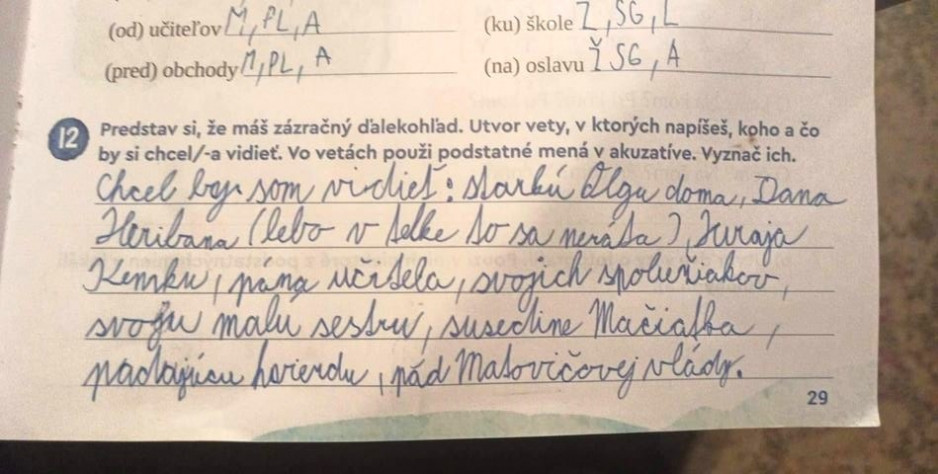 (od) učiteľov M, PL, A (ku) škole Ž, SG, L
(pred) obchody M, PL, A (na) oslavu Ž SG, A
12 Predstav si, že máš zázračný ďalekohľad. Utvor vety, v ktorých napíšeš, koho a čo
by si chcel/-a vidieť. Vo vetách použi podstatné mená v akuzatíve. Vyznač ich.
Chcel by som vidieť: starkú Oľgu doma, Dana
Heribana (lebo v telke to sa neráta), Juraja
Kemku, pána učiteľa, svojich spolužiakov,
svoju malú sestru, susedine Mačiatka,
padajúcu hviezdu, pád Matovičovej vlády.
29